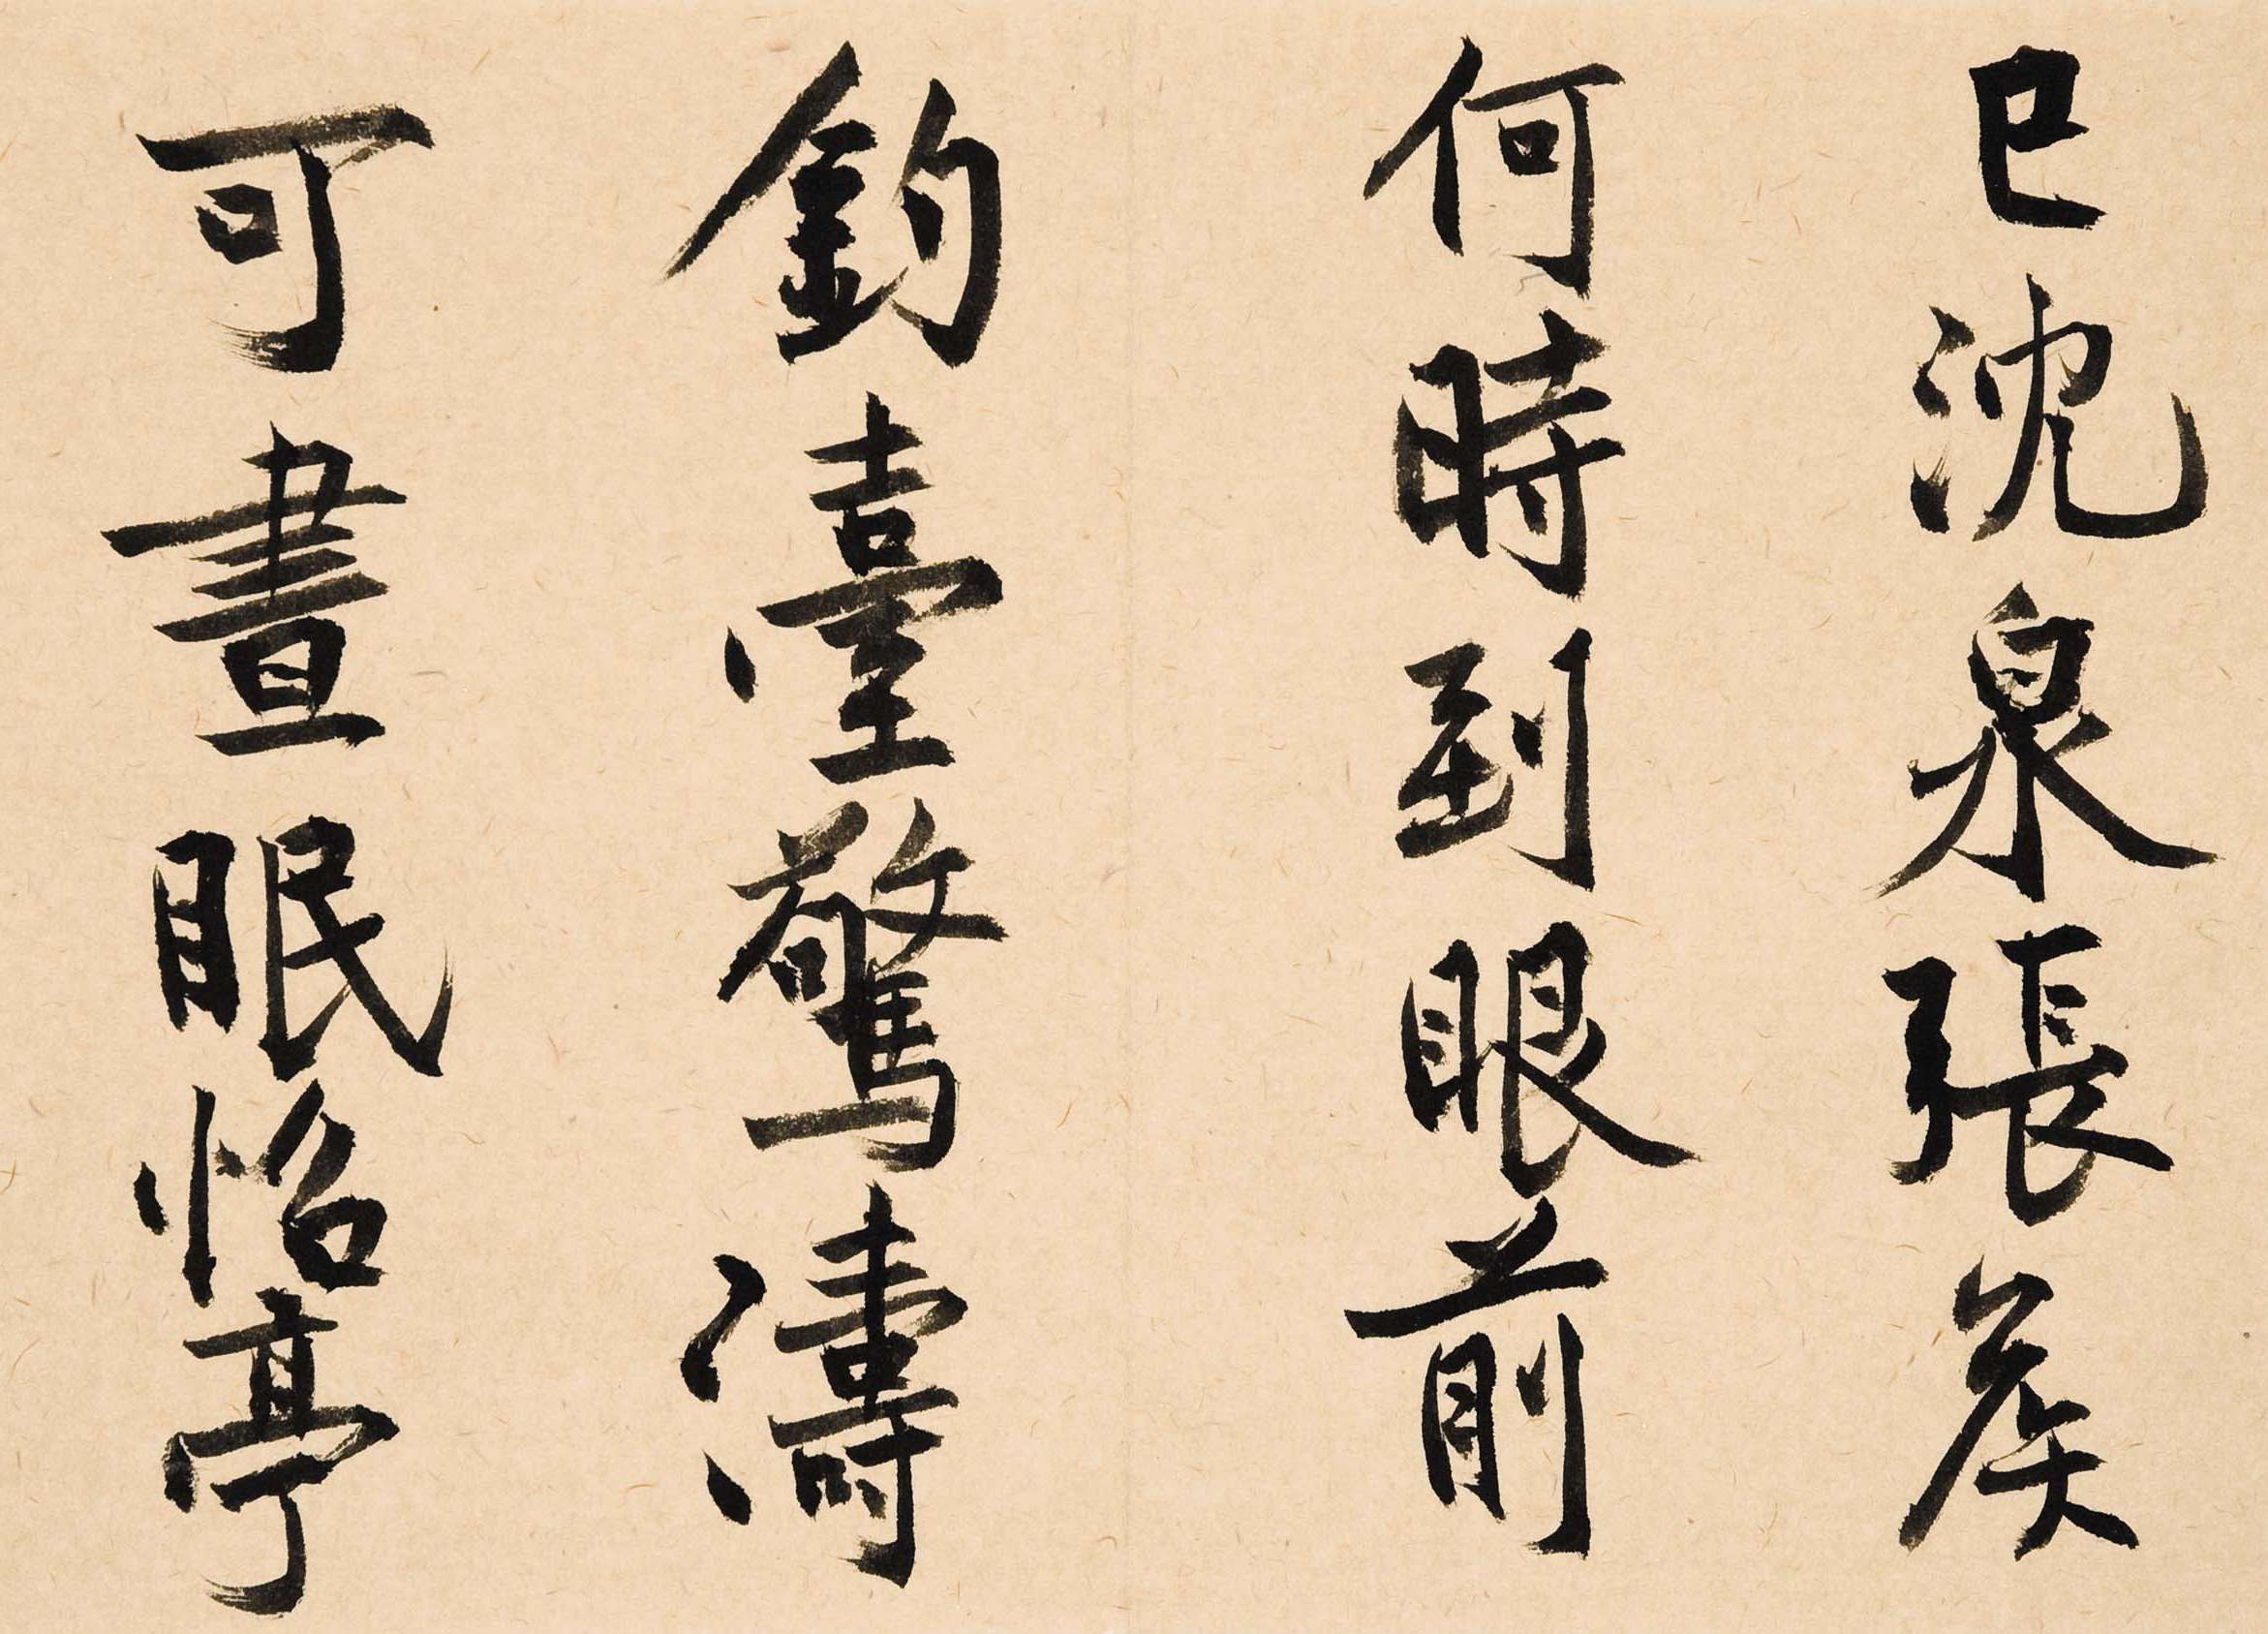 已沈泉張侯
何時到眼前
釣臺驚濤
可晝眠怡亭